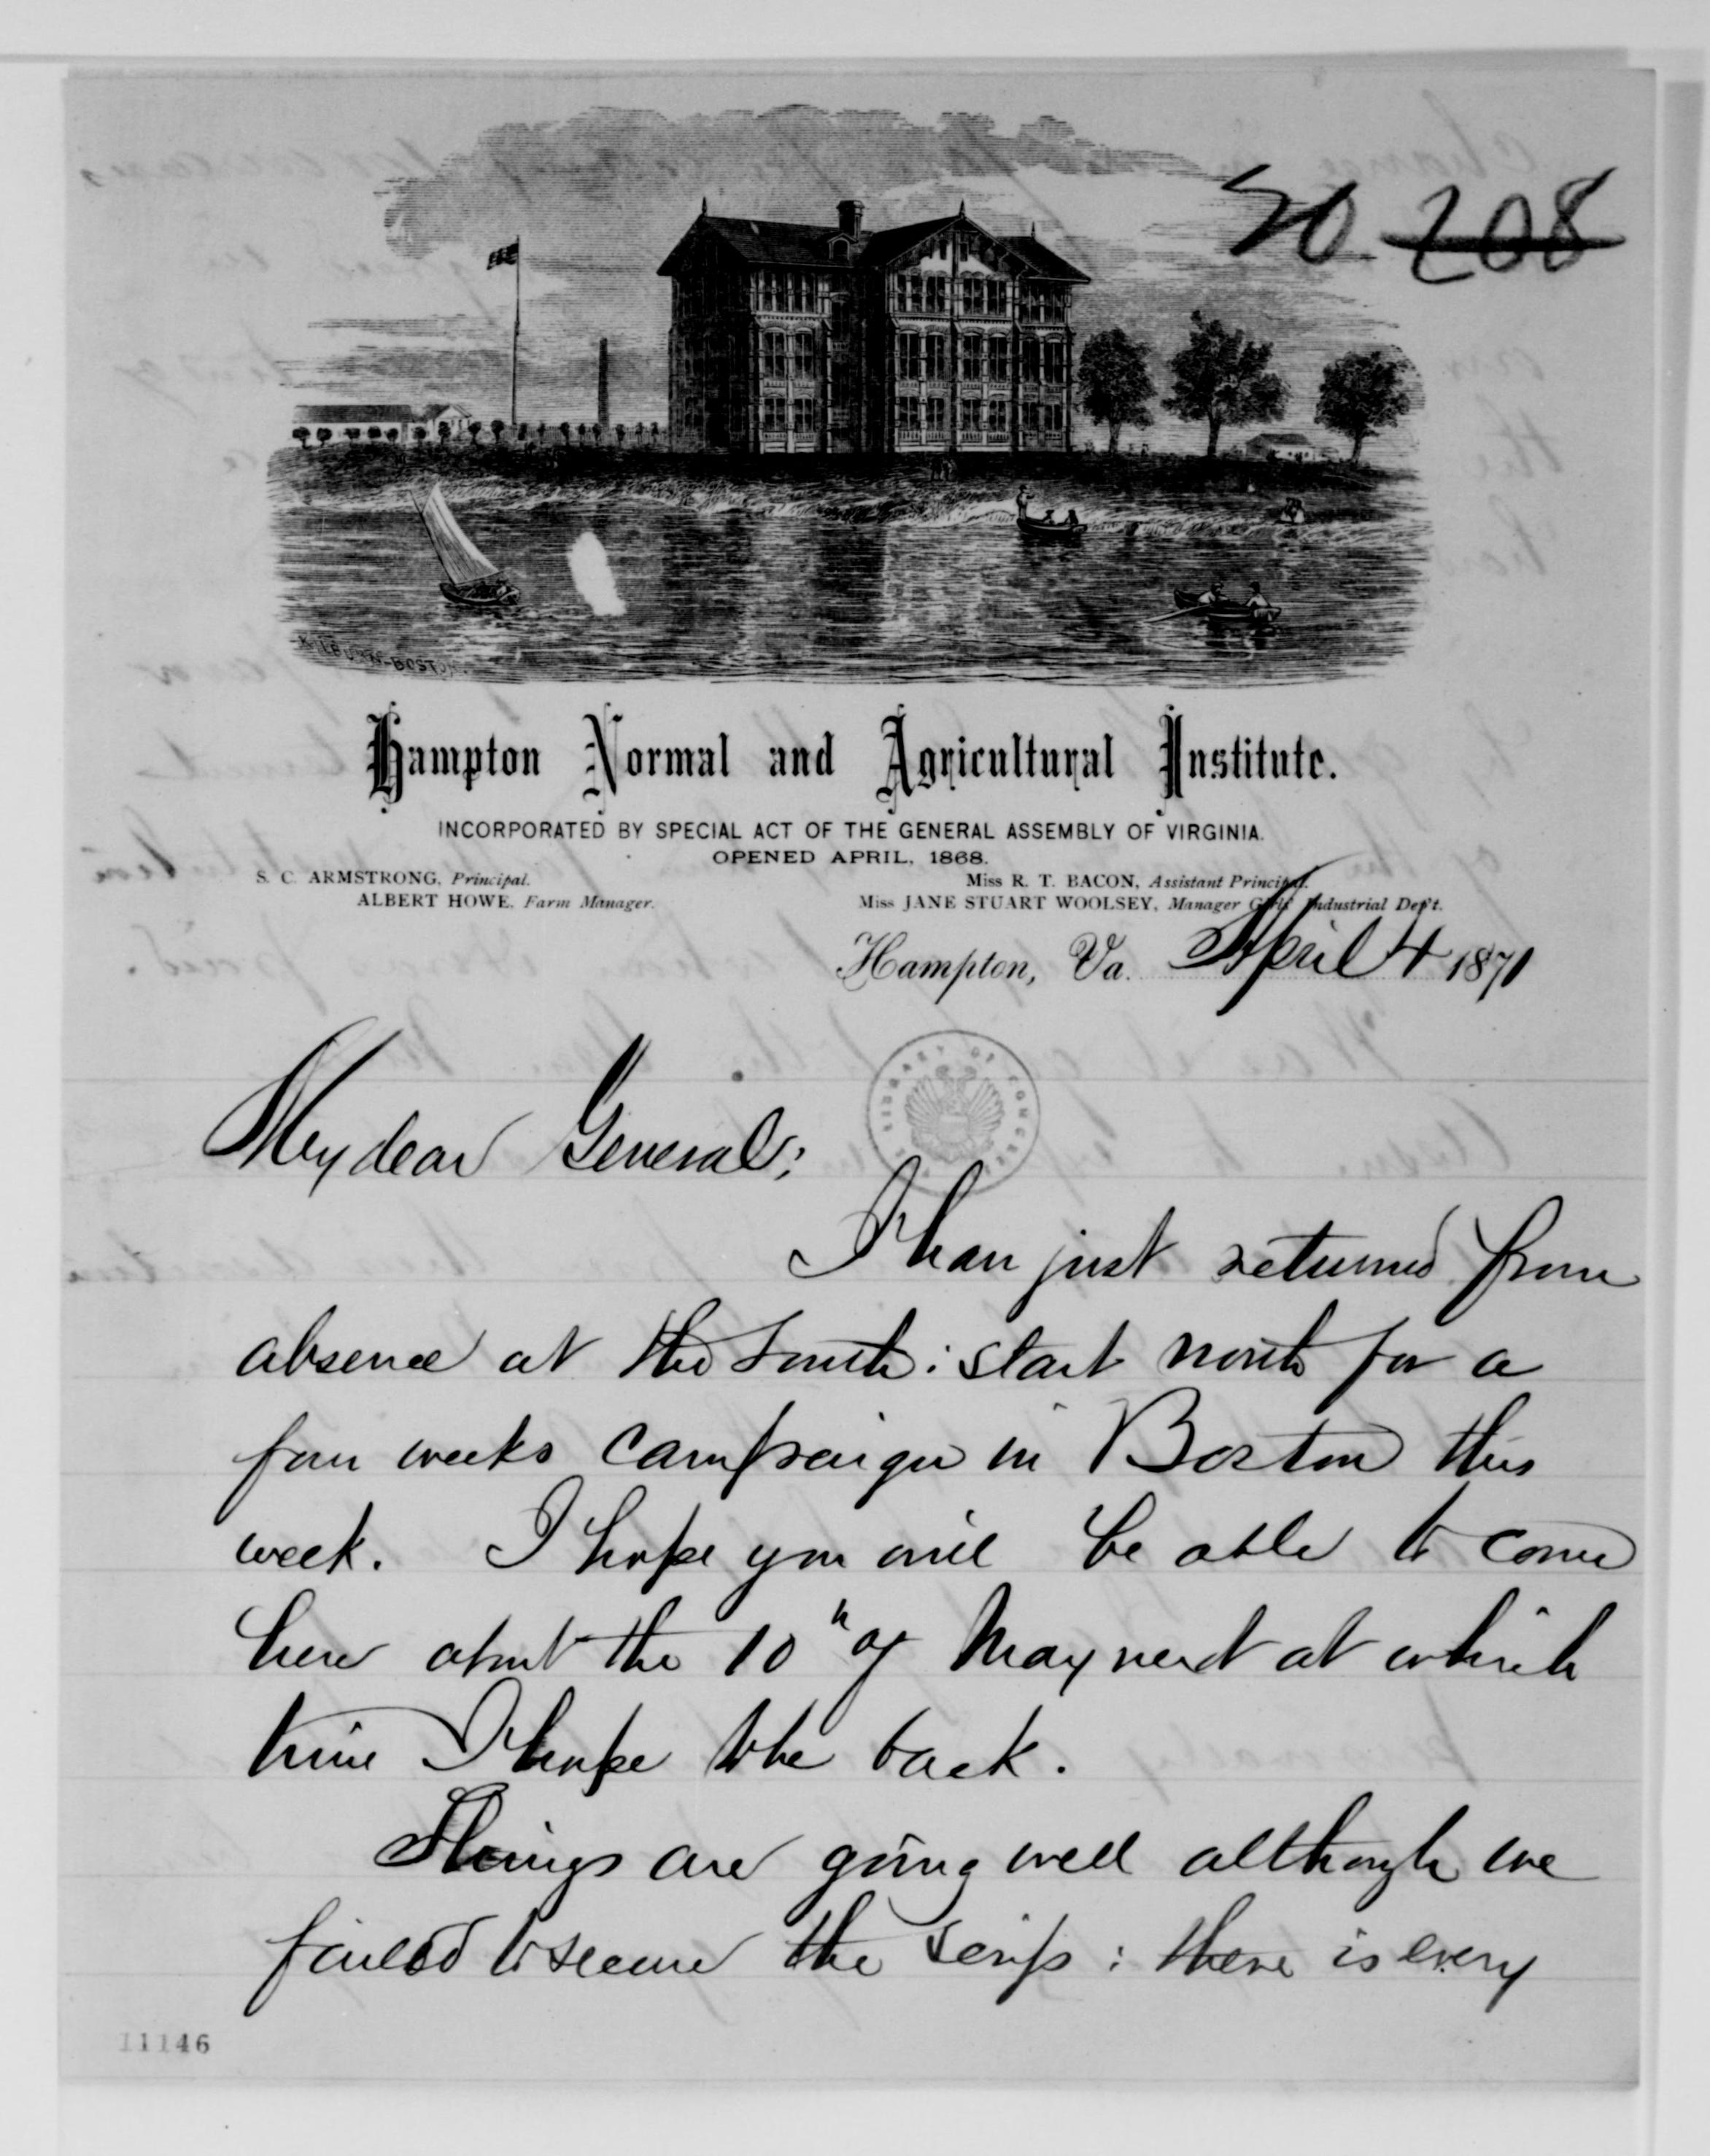 20 208
KILBURN-BOSTON.
Hampton Normal and Agricultural Institute.
INCORPORATED BY SPECIAL ACT OF THE GENERAL ASSEMBLY OF VIRGINIA.
OPENED APRIL, 1868.
S. C. ARMSTRONG, Principal.
ALBERT HOWE, Farm Manager.
Miss R. T. BACON, Assistant Principal.
Miss JANE STUART WOOLSEY, Manager Girls' Industrial Dep't.
Hampton, Va. April 4 1871
LIBRARY OF CONGRESS
My dear General;
I have just returned from
absence at the South: start north for a
four weeks campaign in Boston this
week. I hope you will be able to come
here about the 10" of May next at which
time I hope to be back.
Things are going well although we
failed to secure the scrip: there is every
11146